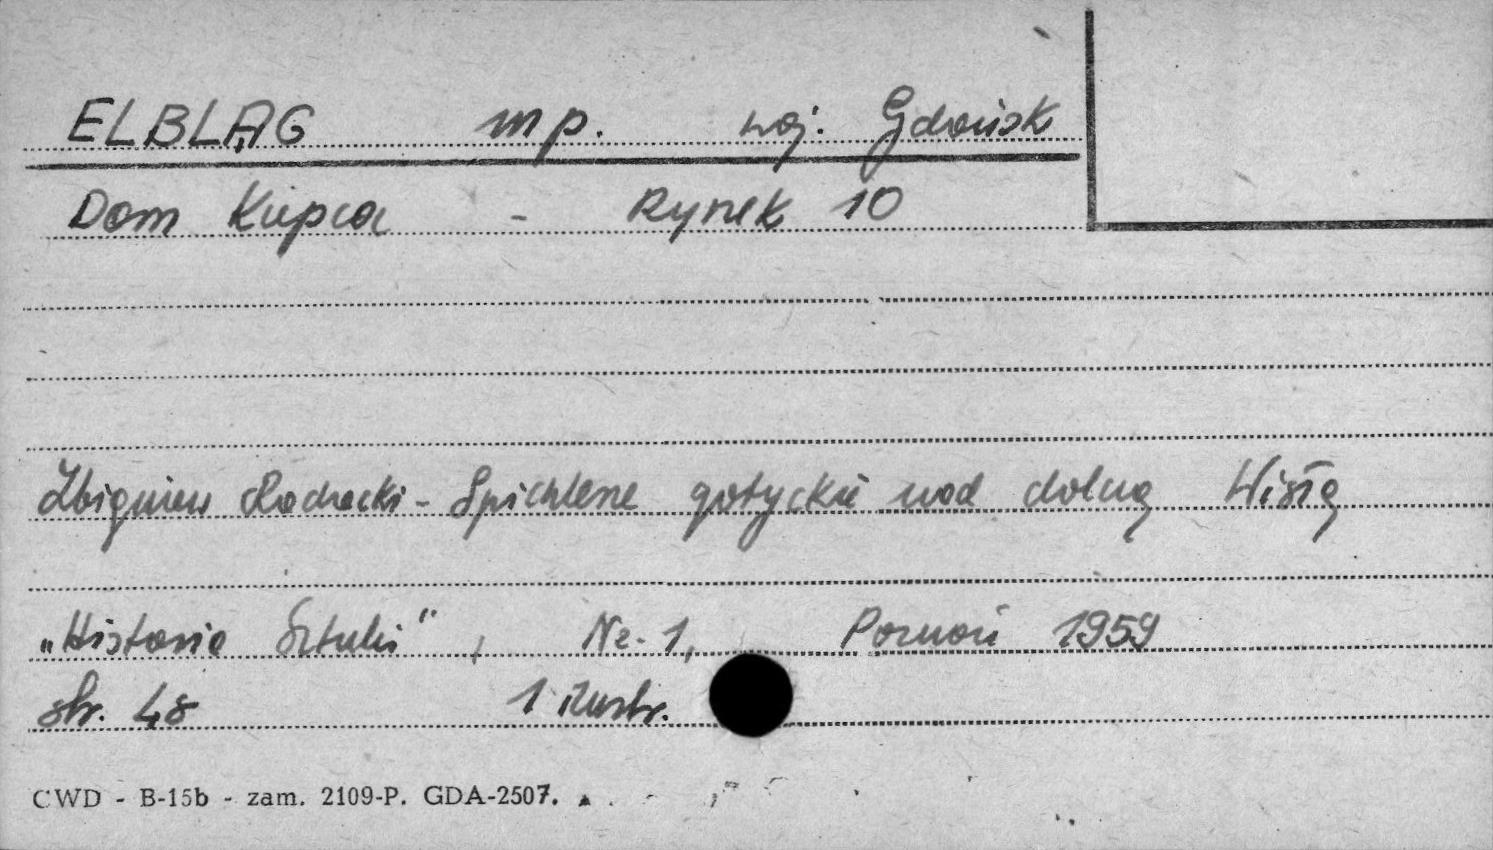 ELBLĄG mp. woj. Gdańsk
Dom Kupca - Rynek 10
Zbigniew Radzecki - Spichlerze gotyckie nad dolną Wisłą
„Historia Sztuki", Nr. 1, Poznań 1959
str. 48 1 ilustr.
CWD - B-15b - zam. 2109-P. GDA-2507.